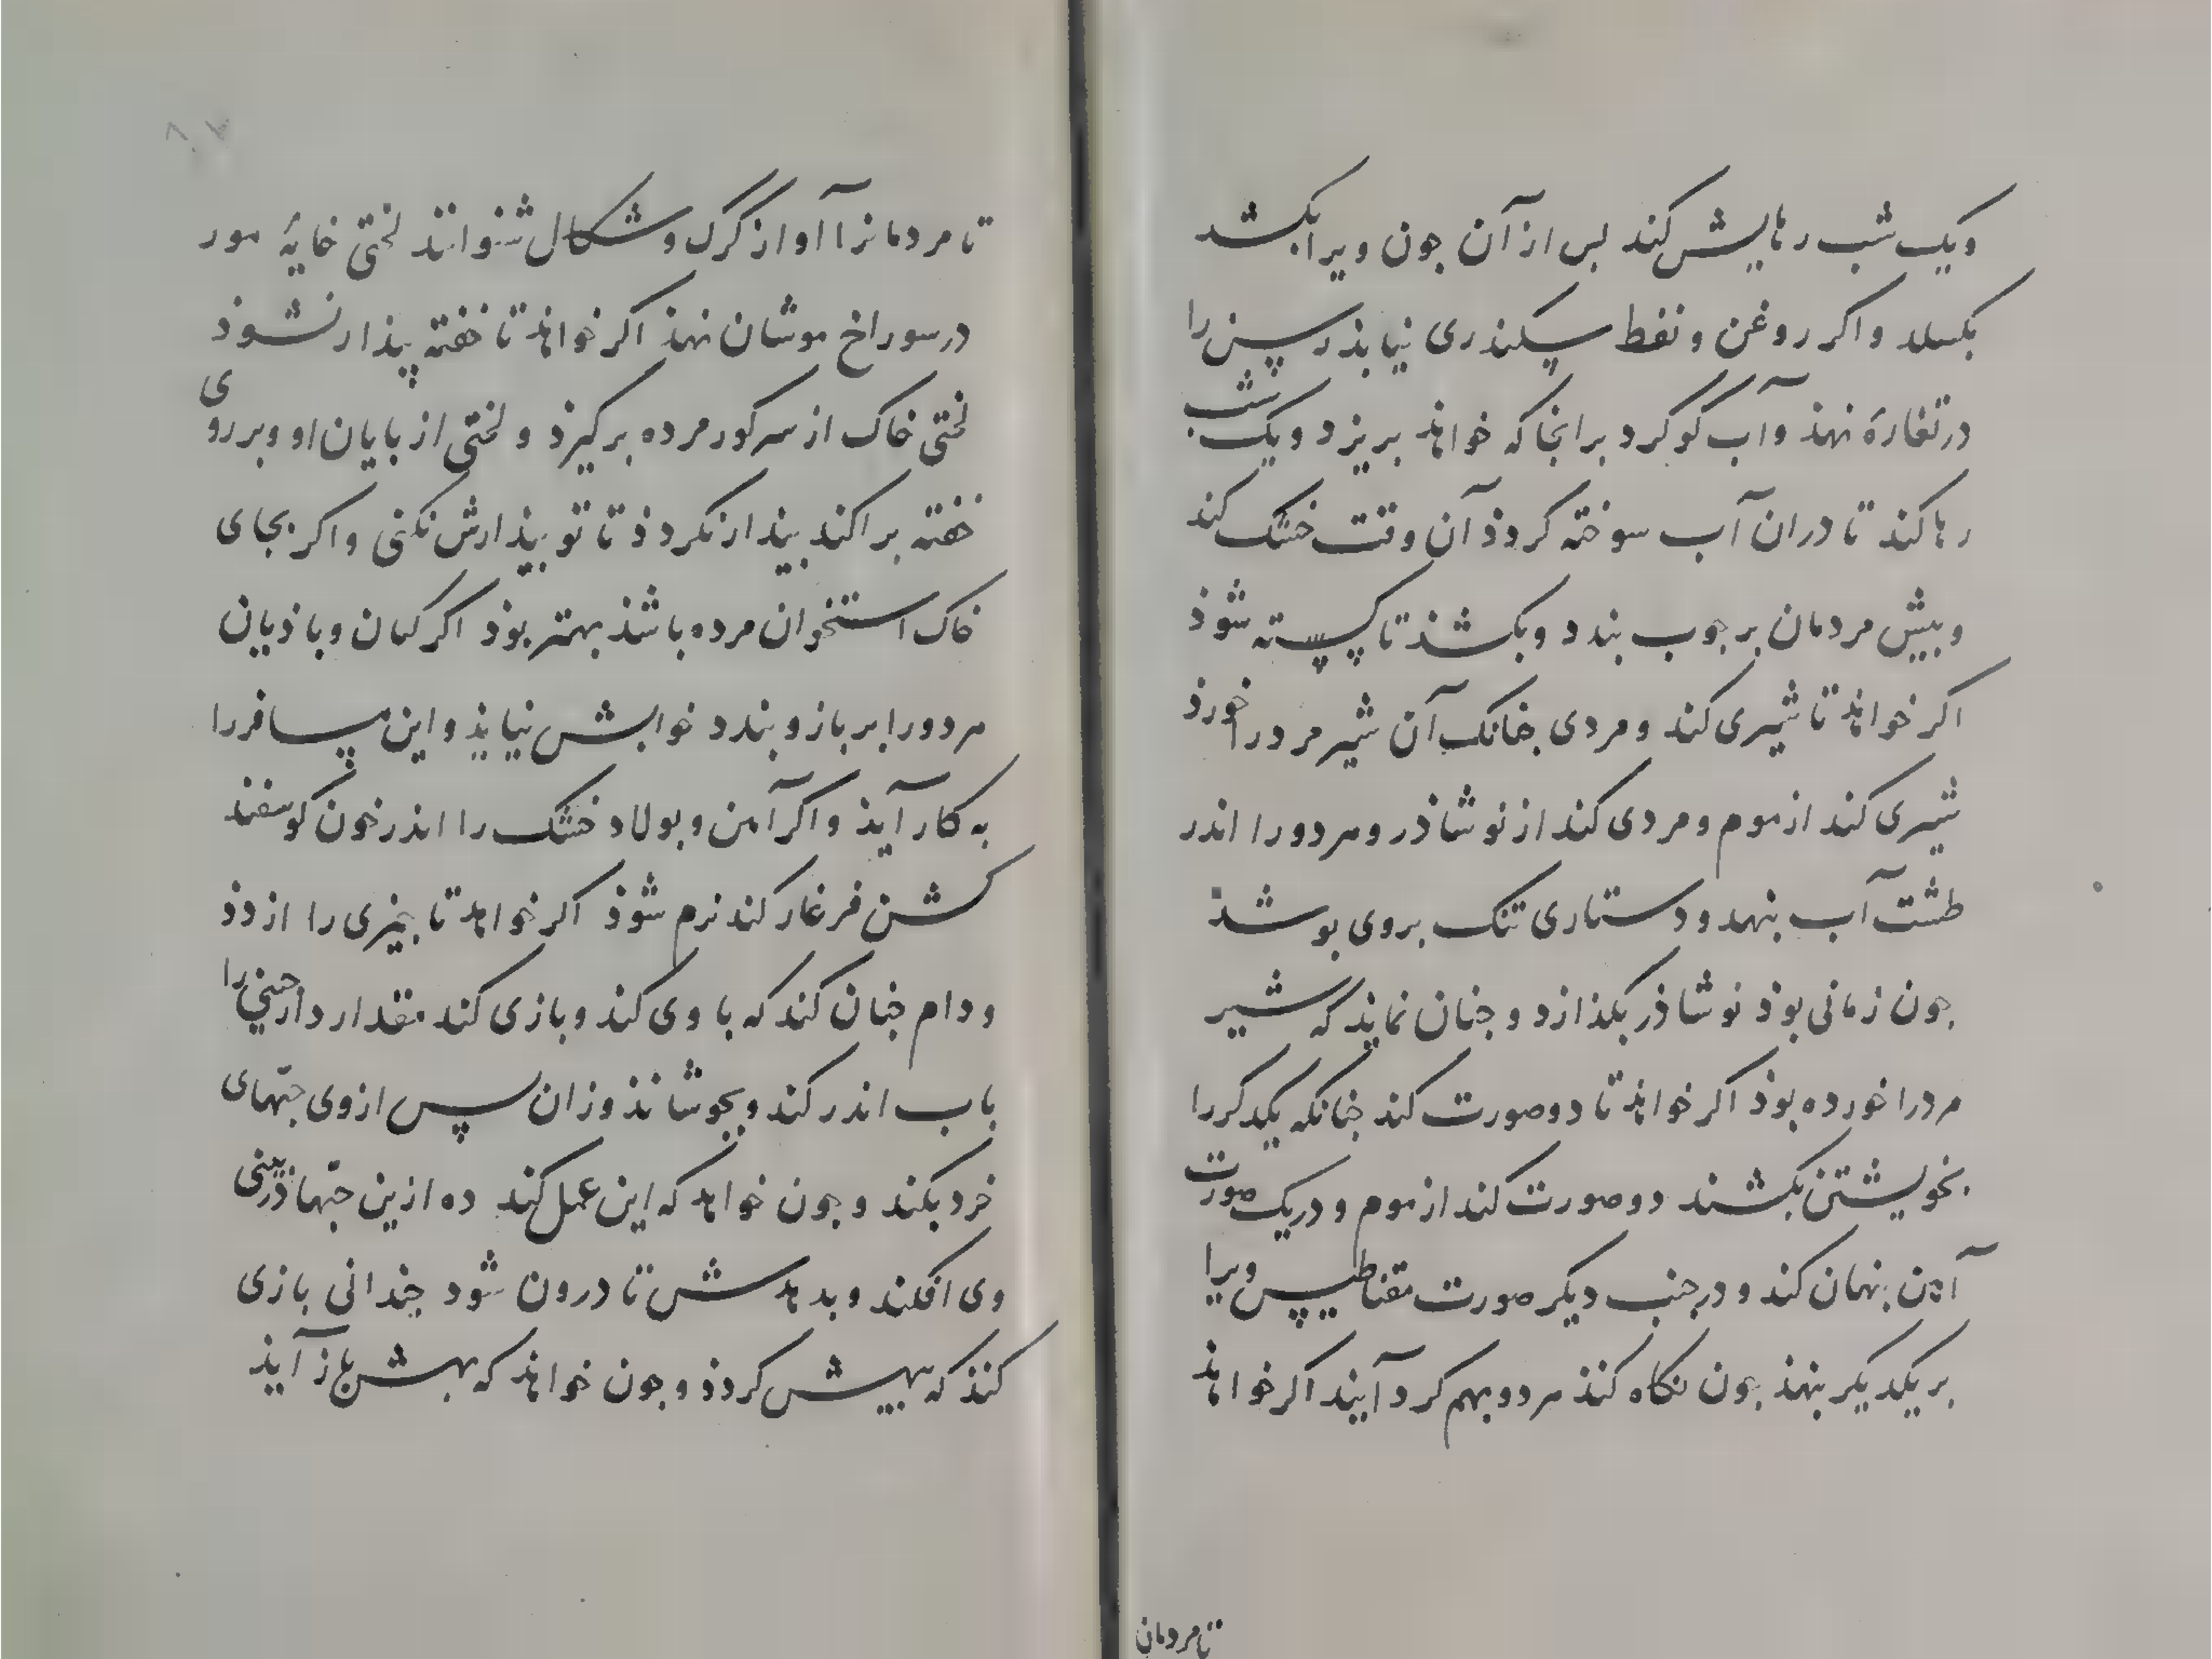 ویک شب رهایش کند بس از آن جون ویرا بکشد
بکسلد واکر روغن و نفط سکندری نیابذ رسن را
در تغارهٔ نهذ وآب کوکرد برانجا که خواهذ بریزد ویک شب
رها کند تا دران آب سوخته کردذ آن وقت خشک کند
وبیش مردمان بر جوب بندد وبکشذ تا کسسته شوذ
اکر خواهذ تا شیری کند ومردی جنانک آن شیر مر درا خورذ
شیری کند از موم ومردی کند از نوشاذر وهردورا اندر
طشت آب بنهد ودستاری تنک بروی بوشذ
جون زمانی بوذ نوشاذر بکذازد وجنان نمایذ که شیر
مردرا خورده بوذ اکر خواهذ تا دو صورت کند جنانکه یکدکررا
بخویشتن بکشند دو صورت کند از موم و در یک صورت
آهن بنهان کند و در جنب دیکر صورت مقناطیس ویرا
بر یکدیکر بنهذ جون نکاه کنذ هردو بهم کرد آیند اکر خواهذ
تا مردمان
تا مردمانرا آواز کرک وشکال شنوانند لختی خایهٔ مور
در سوراخ موشان نهذ اکر خواهذ تا خفته بیذار نشوذ
لختی خاک از سر کور مرده بر کیرذ و لختی از بایان او وبر روی
خفته براکند بیذار نکردذ تا تو بیذارش نکنی واکر بجای
خاک استخوان مرده باشذ بهتر بوذ اکر کمان وباذیان
هردورا بر بازو بندد خوابش نیایذ واین مسافررا
به کار آیذ واکر آهن وبولاد خشک را اندر خون کوسفند
کشن فرغار کند نرم شوذ اکر خواهد تا بخیزی را از دذ
و دام جنان کند که با وی کند وبازی کند مقدار دارجینی را
باب اندر کند وبجوشانذ وزان پس از وی حبّهای
خرد بکند وجون خواهد که این عمل کند ده ازین حبّها در بینی
وی افکند وبدهدش تا درون شود جندانی بازی
کنذ که بیهش کردذ وجون خواهذ که بهش باز آیذ